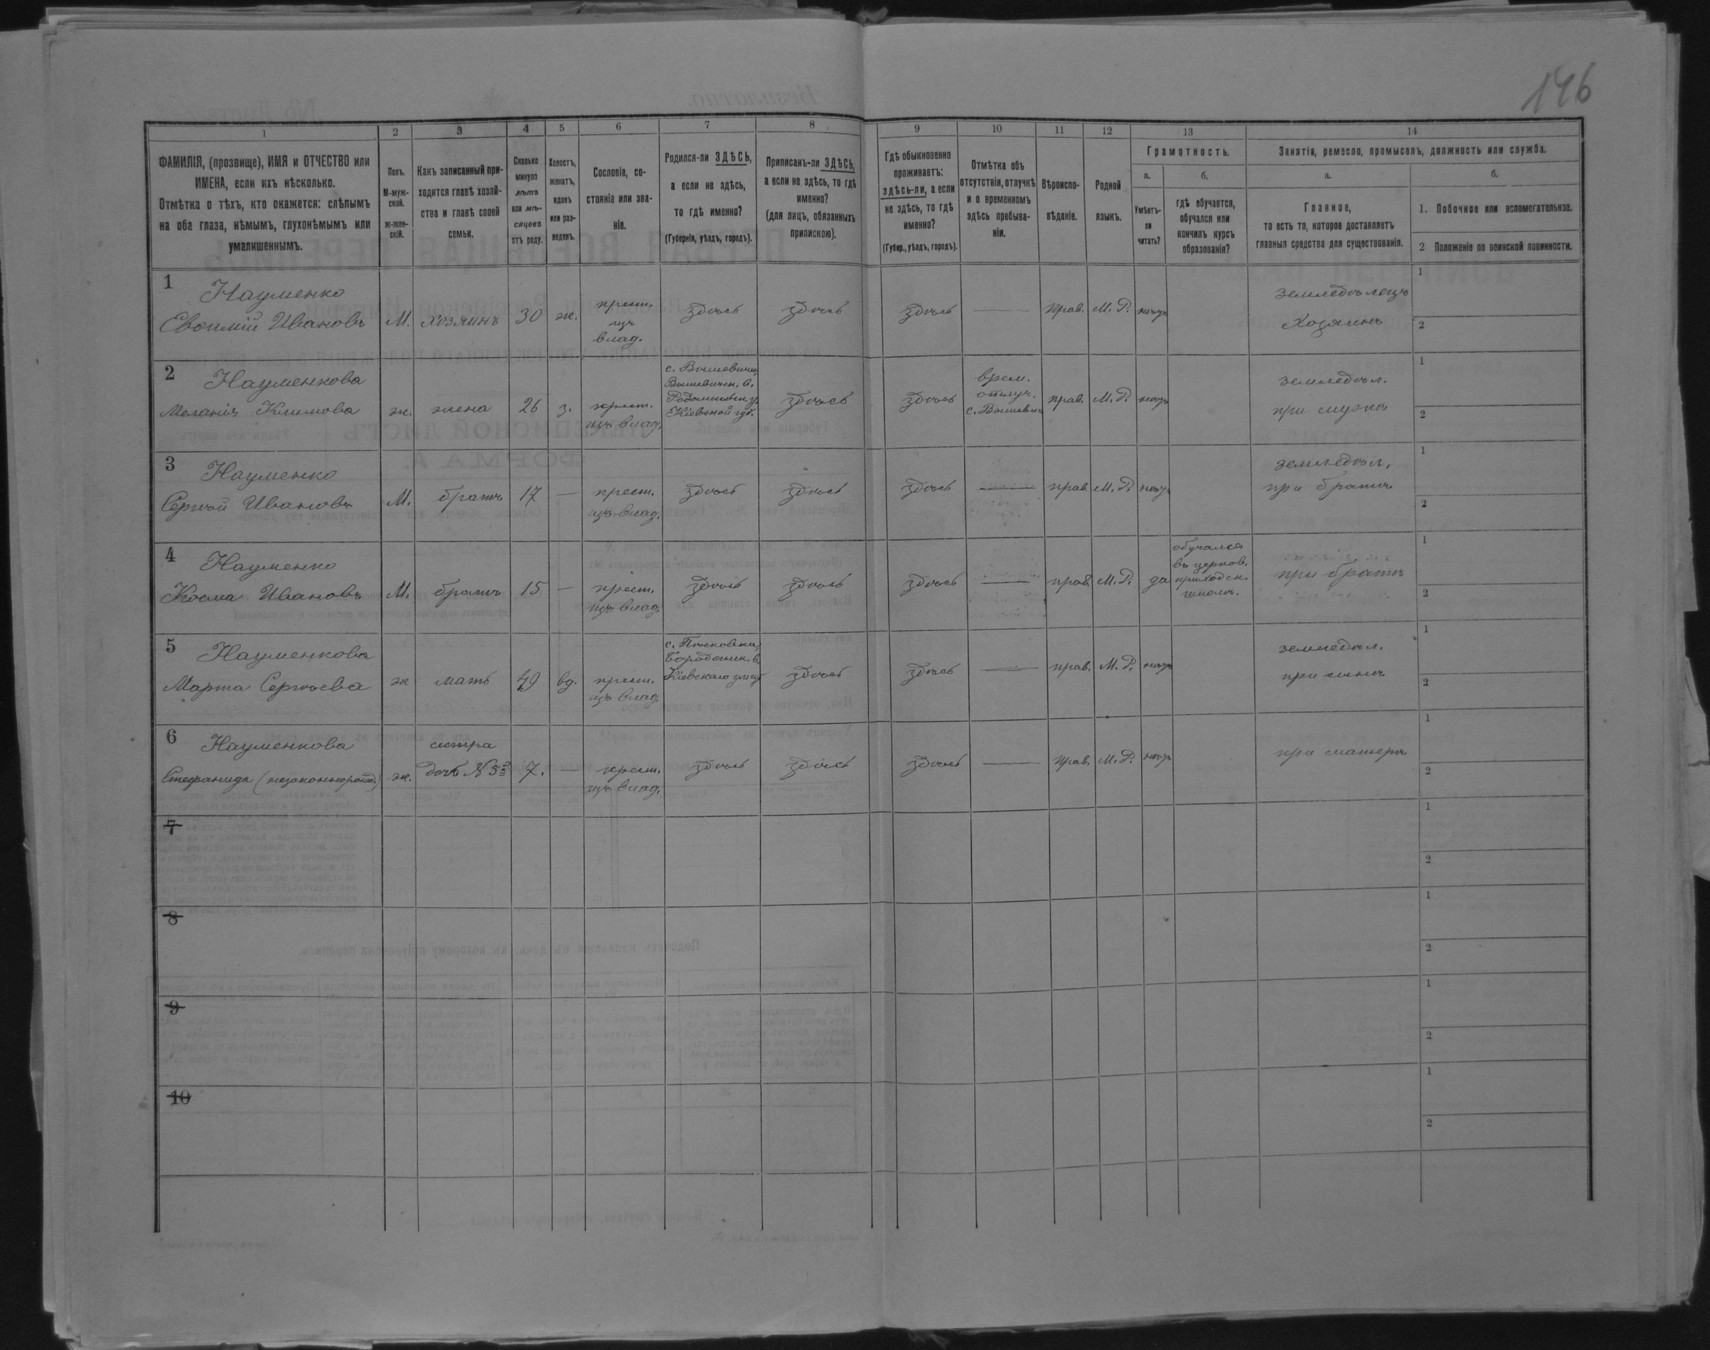 146
1
2
3
4
5
6
7
8
9
10
11
12
13
14
ФАМИЛІЯ, (прозвище), ИМЯ и ОТЧЕСТВО или
ИМЕНА, если ихъ нѣсколько.
Отмѣтка о тѣхъ, кто окажется: слѣпымъ
на оба глаза, нѣмымъ, глухонѣмымъ или
умалишеннымъ.
Полъ.
М-муж-
ской.
ж-жен-
скій.
Какъ записанный при-
ходится главѣ хозяй-
ства и главѣ своей
семьи.
Сколько
минуло
лѣтъ
или мѣ-
сяцевъ
отъ роду.
Холостъ,
женатъ,
вдовъ
или раз-
веденъ.
Сословіе, со-
стояніе или зва-
ніе.
Родился-ли ЗДѢСЬ,
а если не здѣсь,
то гдѣ именно?
(Губернія, уѣздъ, городъ).
Приписанъ-ли ЗДѢСЬ,
а если не здѣсь, то гдѣ
именно?
(для лицъ, обязанныхъ
припискою).
Гдѣ обыкновенно
проживаетъ:
здѣсь-ли, а если
не здѣсь, то гдѣ
именно?
(Губер., уѣздъ, городъ).
Отмѣтка объ
отсутствіи, отлучкѣ
и о временномъ
здѣсь пребыва-
ніи.
Вѣроиспо-
вѣданіе.
Родной
языкъ.
Грамотность.
а.
Умѣетъ-
ли
читать?
б.
гдѣ обучается,
обучался или
кончилъ курсъ
образованія?
Занятіе, ремесло, промыселъ, должность или служба.
а.
Главное,
то есть то, которое доставляетъ
главныя средства для существованія.
б.
1. Побочное или вспомогательное.
2 Положеніе по воинской повинности.
1
Науменко
Евфимій Ивановъ
М.
хозяинъ
30
ж.
крест.
изъ
влад.
здѣсь
здѣсь
здѣсь
—
прав.
М. Р.
нѣтъ
земледѣлецъ
Хозяинъ
1
2
2
Науменкова
Меланія Климова
ж.
жена
26
з.
крест.
изъ влад.
здѣсь
здѣсь
врем.
отлуч.
прав.
М. Р.
нѣтъ
земледѣл.
при мужѣ
1
2
3
Науменко
Сергѣй Ивановъ
М.
братъ
17
—
крест.
изъ влад.
здѣсь
здѣсь
здѣсь
—
прав
М. Р.
нѣтъ
земледѣл.
при братѣ
1
2
4
Науменко
Косма Ивановъ
М.
братъ
15
—
крест.
изъ влад.
здѣсь
здѣсь
здѣсь
—
прав.
М. Р.
да
обучался
въ церков.
приходск.
школѣ.
при братѣ
1
2
5
Науменкова
Марта Сергѣева
ж
мать
49
вд.
крест.
изъ влад.
Кіевскаго уѣзд
здѣсь
здѣсь
—
прав.
М. Р.
нѣтъ
земледѣл.
при сынѣ
1
2
6
Науменкова
Степанида (незаконнорожд)
ж.
сестра
дочь №5й
7.
—
крест.
изъ влад.
здѣсь
здѣсь
здѣсь
—
прав.
М. Р.
нѣтъ
при матери
1
2
7
1
2
8
1
2
9
1
2
10
1
2